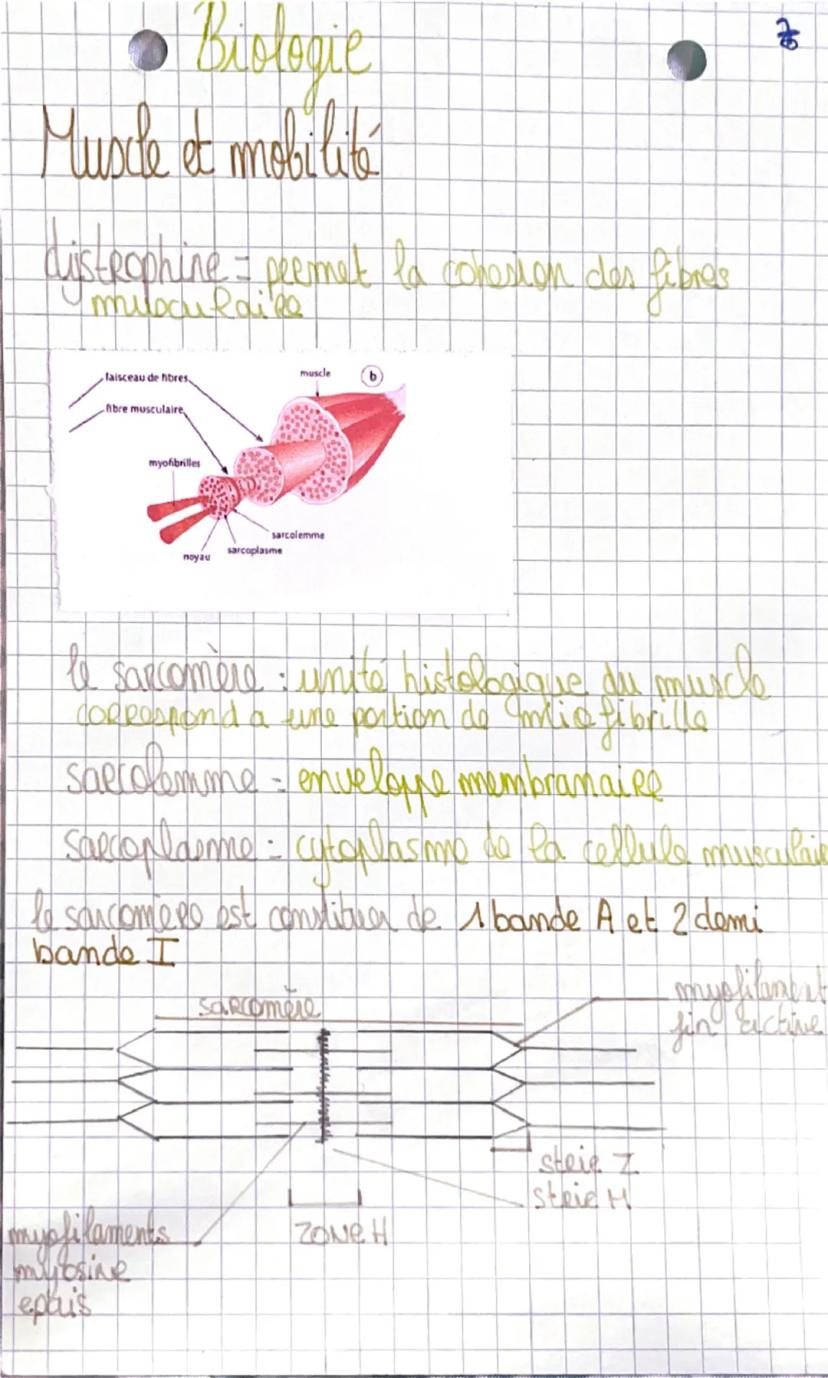 Biologie
Muscle et mobilité
dystrophine = permet la cohesion des fibres
musculaire
faisceau de fibres
muscle
b
fibre musculaire
myofibrilles
sarcolemme
sarcoplasme
noyau
le sarcomère : unité histologique du muscle
correspond a une portion de miofibrille
sarcolemme = enveloppe membranaire
sarcoplasme = cytoplasme de la cellule musculaire
le sarcomere est constituer de 1 bande A et 2 demi
bande I
sarcomère
myofilament
fin actine
strie Z
strie M
zone H
myofilaments
myosine
epais